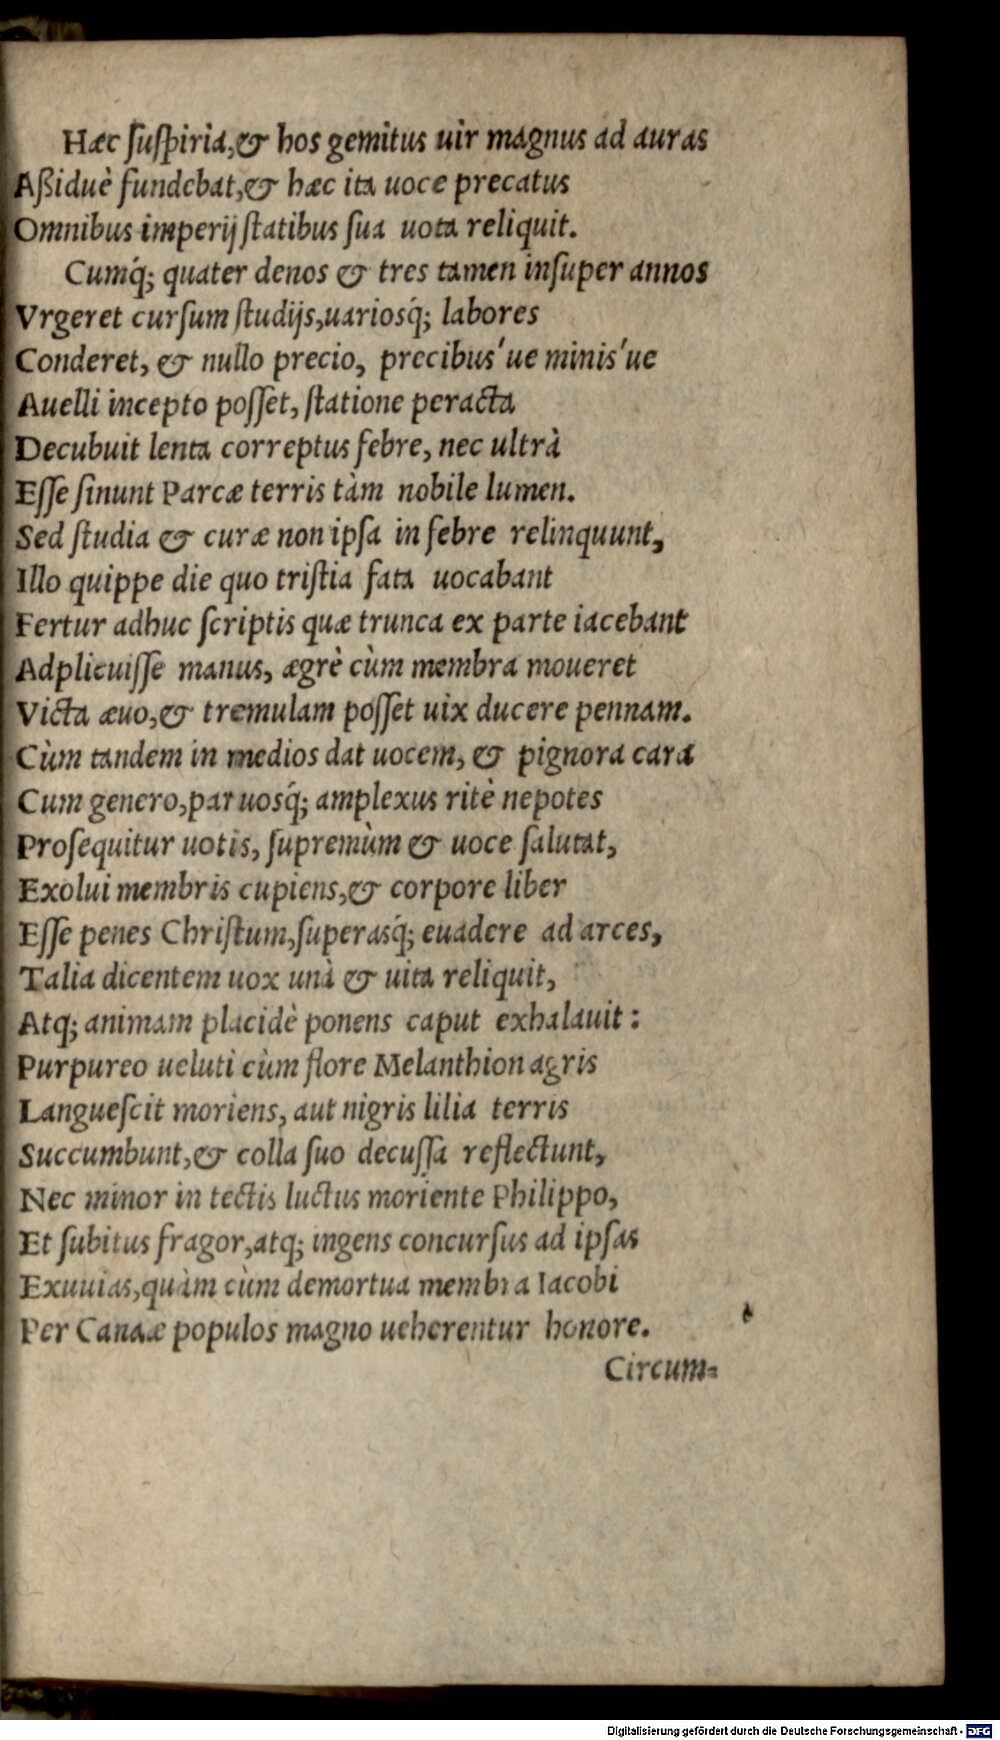 Hæc ſuſpiria,& hos gemitus uir magnus ad auras
Aßiduè fundebat,& hæc ita uoce precatus
Omnibus imperij ſtatibus ſua uota reliquit.
Cumq́; quater denos & tres tamen inſuper annos
Vrgeret curſum ſtudijs,uarioſq́; labores
Conderet, & nullo precio, precibus'ue minis'ue
Auelli incepto poſſet, ſtatione peracta
Decubuit lenta correptus febre, nec ultrà
Eſſe ſinunt Parcæ terris tàm nobile lumen.
Sed ſtudia & curæ non ipſa in febre relinquunt,
Illo quippe die quo triſtia fata uocabant
Fertur adhuc ſcriptis quæ trunca ex parte iacebant
Adplicuiſſe manus, ægrè cùm membra moueret
Victa æuo,& tremulam poſſet uix ducere pennam.
Cùm tandem in medios dat uocem, & pignora cara
Cum genero,paruosq́; amplexus ritè nepotes
Proſequitur uotis, ſupremùm & uoce ſalutat,
Exolui membris cupiens,& corpore liber
Eſſe penes Chriſtum,ſuperasq́; euadere ad arces,
Talia dicentem uox unà & uita reliquit,
Atq; animam placidè ponens caput exhalauit:
Purpureo ueluti cùm flore Melanthion agris
Langueſcit moriens, aut nigris lilia terris
Succumbunt,& colla ſuo decuſſa reflectunt,
Nec minor in tectis luctus moriente Philippo,
Et ſubitus fragor,atq; ingens concurſus ad ipſas
Exuuias,quàm cùm demortua membra Iacobi
Per Canaæ populos magno ueherentur honore.
Circum-
Digitalisierung gefördert durch die Deutsche Forschungsgemeinschaft - DFG